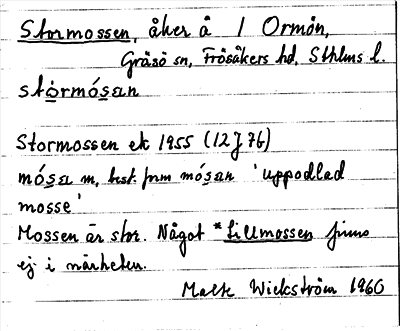 Stormossen, åker å 1 Ormön,
Gräsö sn, Frösåkers hd, Sthlms l.
stórmósan
Stormossen ek 1955 (12J7b)
mósa m, best. form mósan 'uppodlad
mosse'
Mossen är stor. Något *Lillmossen finns
ej i närheten.
Malte Wickström 1960